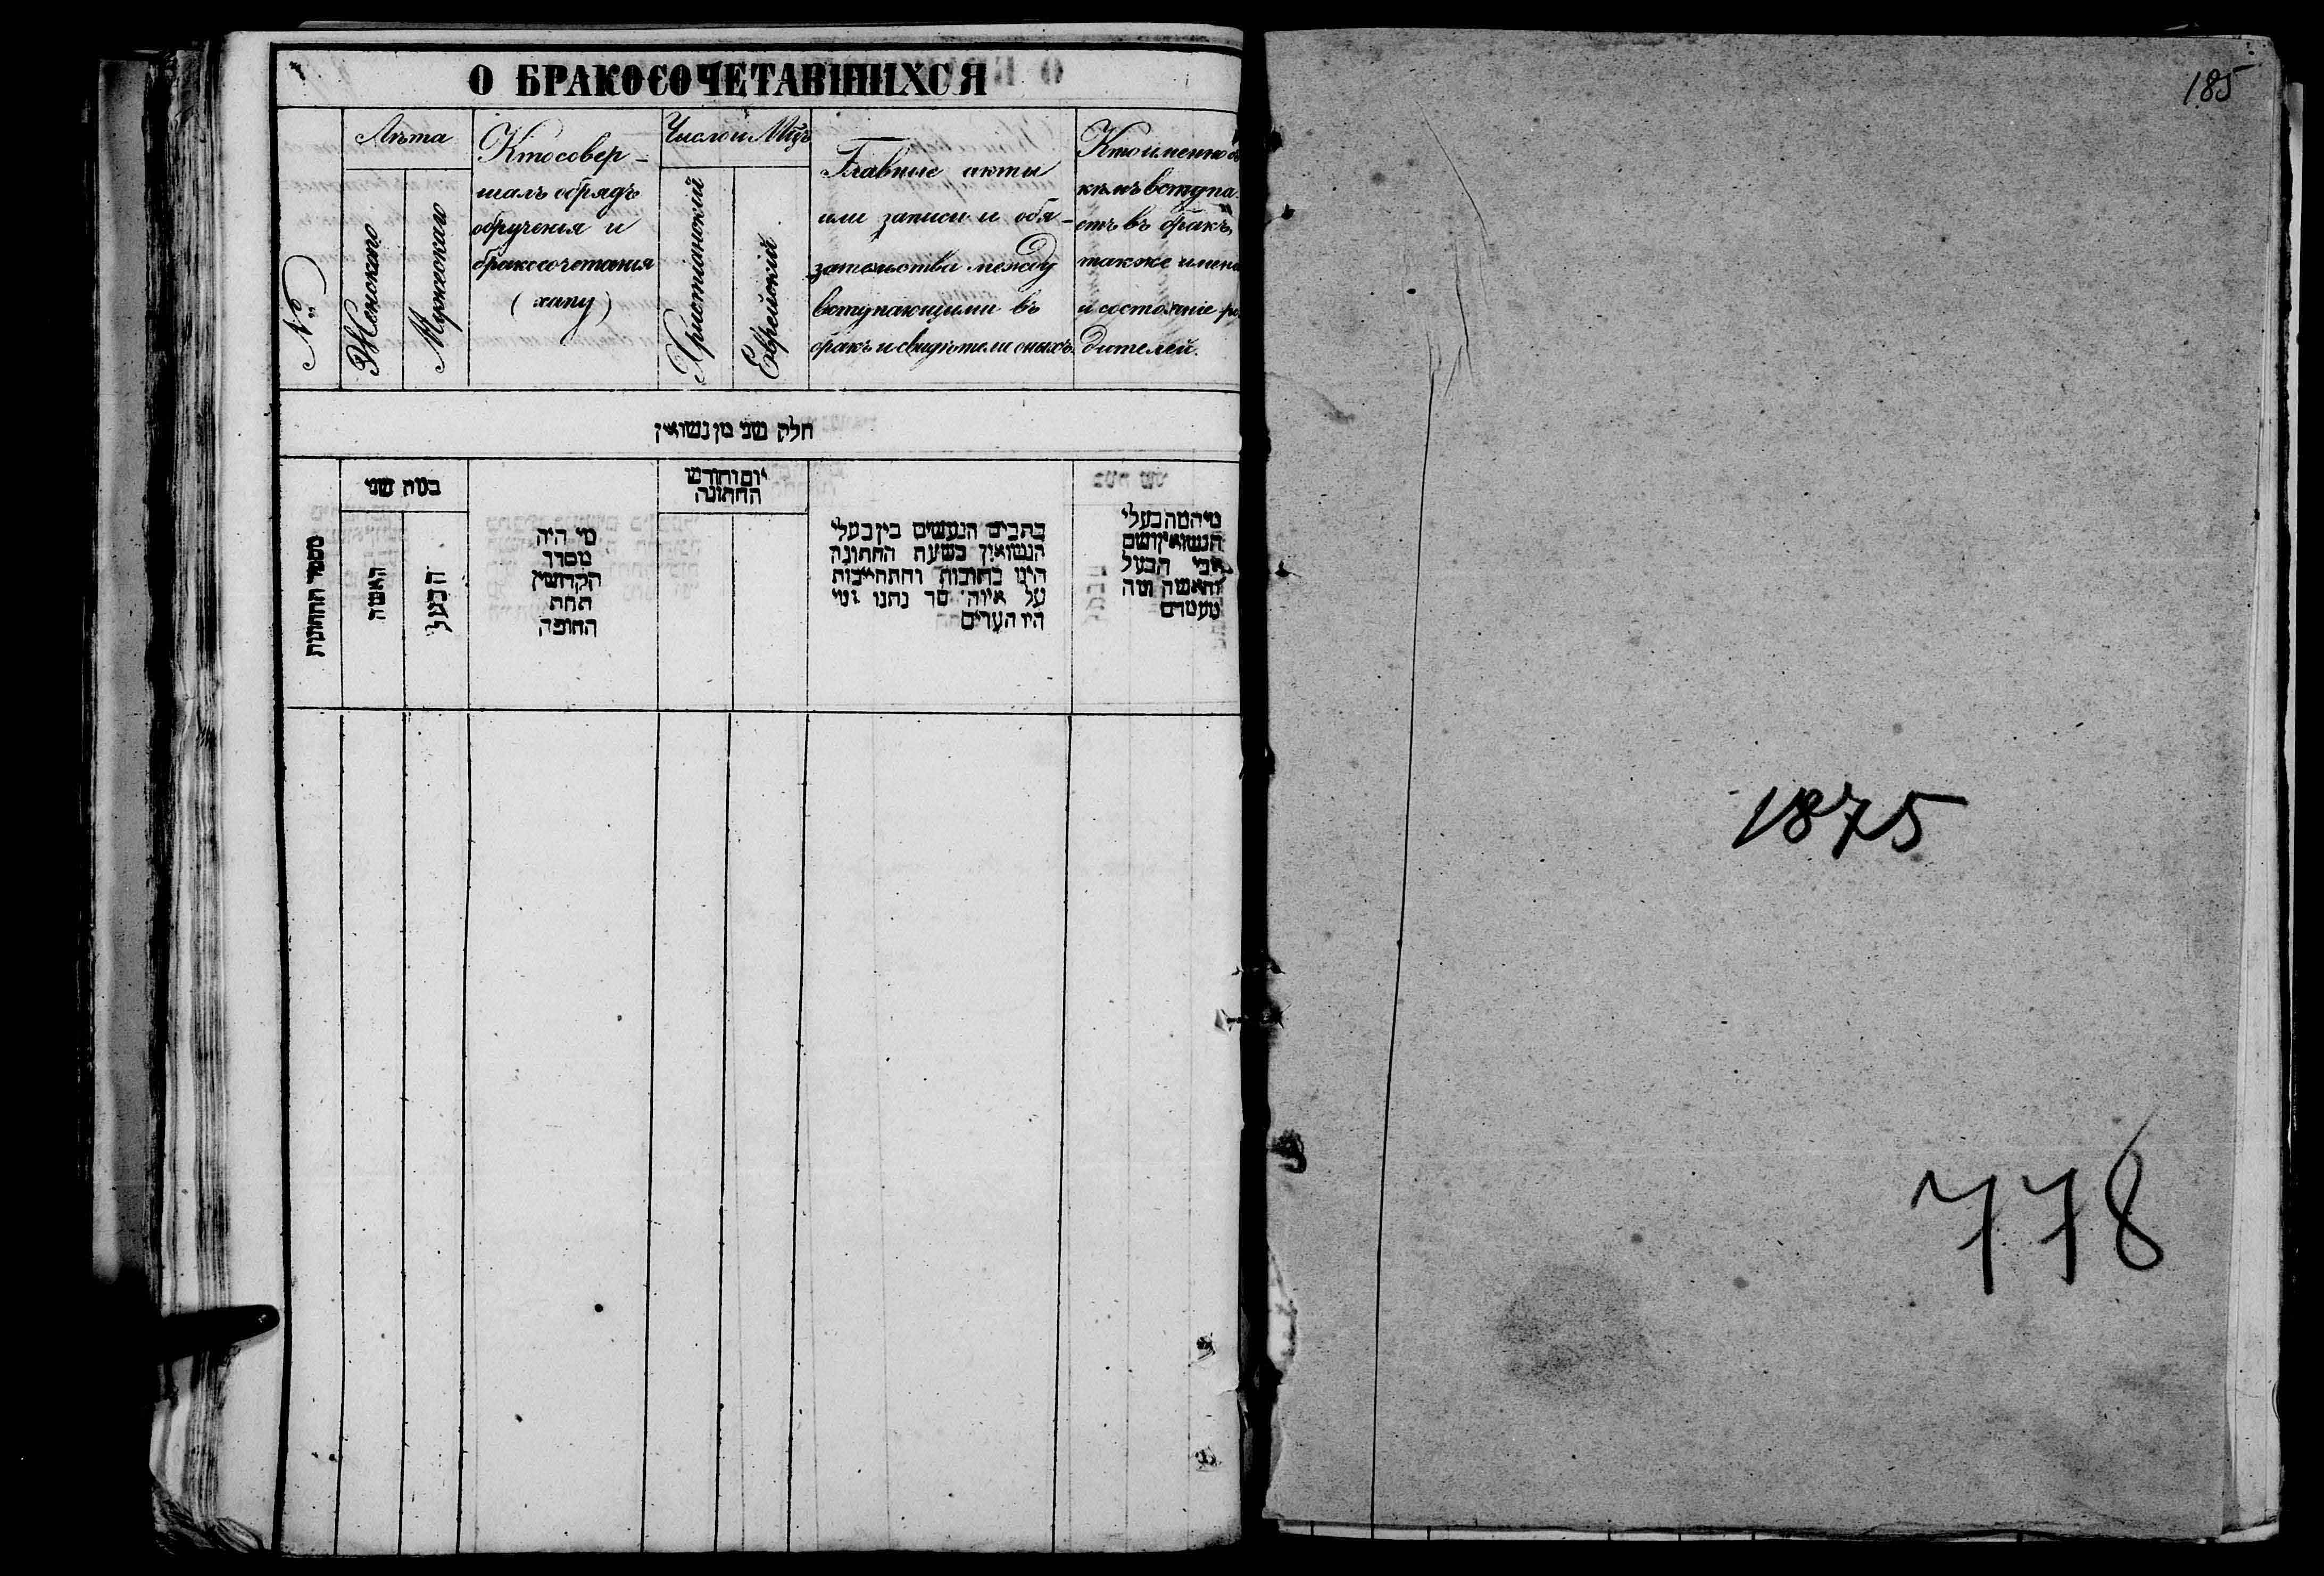 О БРАКОСОЧЕТАВШИХСЯ
№
Лѣта
Женскаго
Мужескаго
Кто совер-
шалъ обрядъ
обрученія и
бракосочетанія
(хипу)
Число и Мцъ
Христіанскій
Еврейскій
Главные акты
или записи и обя-
зательства между
вступающими въ
бракъ и свидѣтели оныхъ.
Кто именно съ
кѣмъ вступа-
етъ въ бракъ,
также имена
и состояніе ро
дителей.
חלק שני מן נשואין
מספר החתונות
כמה שני
האשה
הבעל
מי היה
מסדר
הקדושין
תחת
החופה
יום וחודש
החתונה
כתבים הנעשים בין בעלי
הנשואין בשעת החתונה
היינו כתובות והתחייבות
על איזה סך נתנו ומי
היו העדים
מי המה בעלי
הנשואין ושם
אבי הבעל
והאשה ומה
מעמדם
185
1875
778